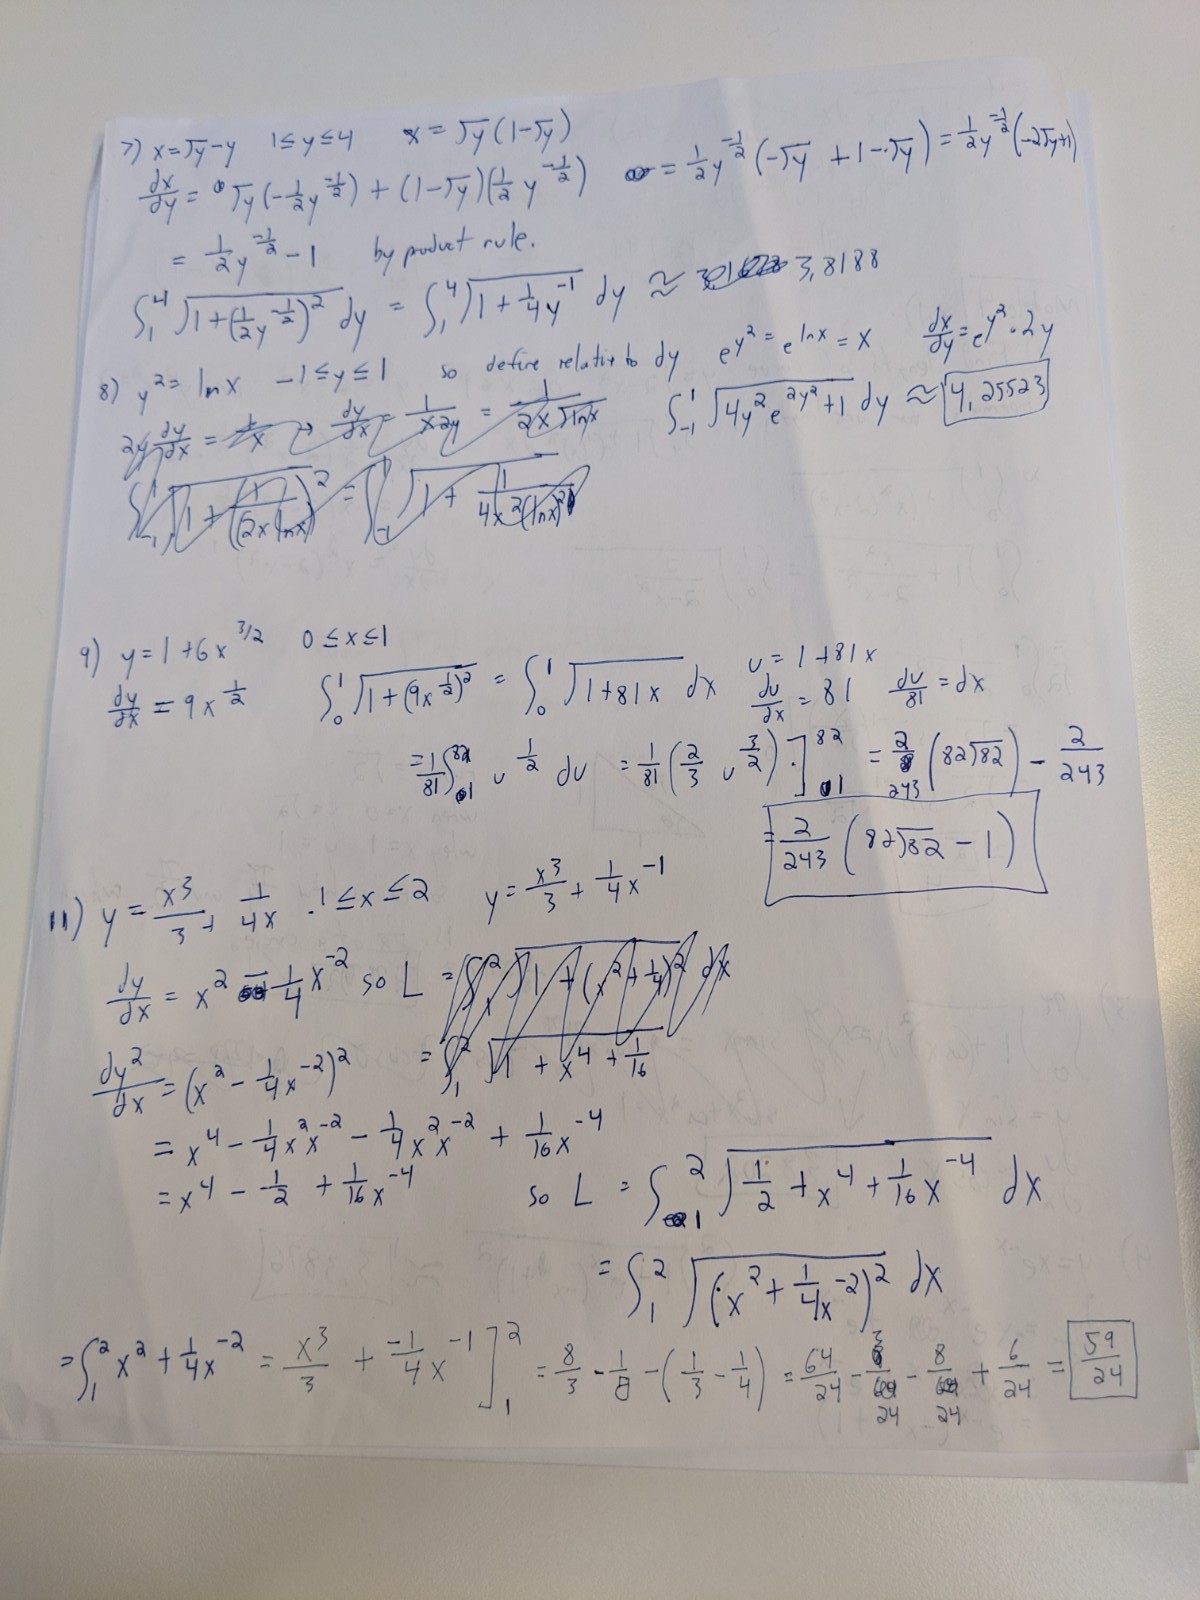 7) x = √y - y   1 ≤ y ≤ 4   x = √y (1 - √y)
dx/dy = √y (-1/2 y^(-1/2)) + (1 - √y)(1/2 y^(-1/2))   = 1/2 y^(-1/2) (-√y + 1 - √y) = 1/2 y^(-1/2) (-2√y + 1)
= 1/2 y^(-1/2) - 1   by product rule.
∫_1^4 √(1 + (1/2 y^(-1/2))^2) dy = ∫_1^4 √(1 + 1/4 y^(-1)) dy ≈ 3,8188
8) y^2 = ln x   -1 ≤ y ≤ 1   so define relative to dy   e^(y^2) = e^(ln x) = x   dx/dy = e^(y^2) · 2y
2y dy/dx = 1/x → dy/dx = 1/(x2y) = 1/(2x√(ln x))   ∫_-1^1 √(4y^2 e^(2y^2) + 1) dy ≈ 4,25523
∫_-1^1 √(1 + (1/(2x(ln x)))^2) = ∫_-1^1 √(1 + 1/(4x^2 (ln x)^2))
9) y = 1 + 6x^(3/2)   0 ≤ x ≤ 1
dy/dx = 9x^(1/2)   ∫_0^1 √(1 + (9x^(1/2))^2) = ∫_0^1 √(1 + 81x) dx   u = 1 + 81x
du/dx = 81   du/81 = dx
= 1/81 ∫_1^82 u^(1/2) du = 1/81 (2/3 u^(3/2)) · ]_1^82 = 2/243 (82√82) - 2/243
= 2/243 (82√82 - 1)
11) y = x^3/3 + 1/(4x)   1 ≤ x ≤ 2   y = x^3/3 + 1/4 x^(-1)
dy/dx = x^2 - 1/4 x^(-2) so L = ∫_1^2 √(1 + (x^2 + 1/4)^2) dx
dy^2/dx = (x^2 - 1/4 x^(-2))^2   = ∫_1^2 √(1 + x^4 + 1/16)
= x^4 - 1/4 x^2 x^(-2) - 1/4 x^2 x^(-2) + 1/16 x^(-4)
= x^4 - 1/2 + 1/16 x^(-4)   so L = ∫_1^2 √(1/2 + x^4 + 1/16 x^(-4)) dx
= ∫_1^2 √((x^2 + 1/4 x^(-2))^2) dx
= ∫_1^2 x^2 + 1/4 x^(-2) = x^3/3 + -1/4 x^(-1) ]_1^2 = 8/3 - 1/8 - (1/3 - 1/4) = 64/24 - 3/24 - 8/24 + 6/24 = 59/24